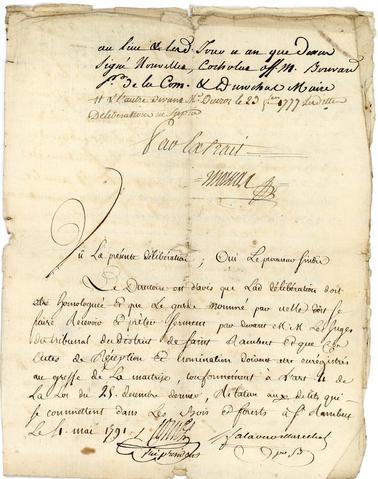 au Lieu & lesd. Jour u an que dessus
Signé Nouvelles, Cochelus off. M. Bouvard
pr. de la Com. & Durochat Maire
Et L'autre devant Mr. Ducros le 23 1777 Laditte
Délibération
Par Extrait
Vû La présente délibération; Oui Le procureur sindic
Le Directoire est d'avis que Lad délibération doit
etre homologuée et que Le garde nommé par icelle doit se
faire Recevoir et prêter serment par devant M.M. Les Juges
du tribunal du district de saint Rambert et que Les
actes de Réception et nomination doivent etre enregistrés
au greffe de La maitrise, conformément à L'art 4 de
La Loi du 25. décembre dernier, Relative aux délits qui
se commettent dans Les Bois et forêts à St Rambert
Le 11. mai 1791